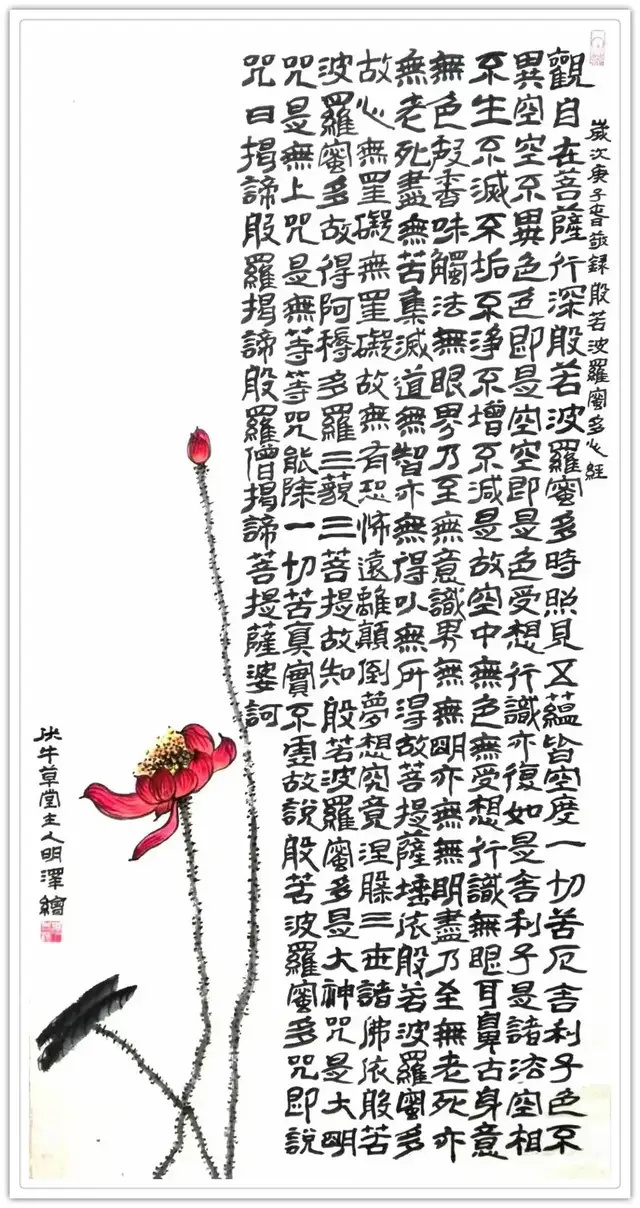 歲次庚子春敬録般若波羅蜜多心經
觀自在菩薩行深般若波羅蜜多時照見五蘊皆空度一切苦厄舍利子色不
異空空不異色色即是空空即是色受想行識亦復如是舍利子是諸法空相
不生不滅不垢不淨不增不減是故空中無色無受想行識無眼耳鼻舌身意
無色聲香味觸法無眼界乃至無意識界無無明亦無無明盡乃至無老死亦
無老死盡無苦集滅道無智亦無得以無所得故菩提薩埵依般若波羅蜜多
故心無罣礙無罣礙故無有恐怖遠離顛倒夢想究竟涅槃三世諸佛依般若
波羅蜜多故得阿耨多羅三藐三菩提故知般若波羅蜜多是大神咒是大明
咒是無上咒是無等等咒能除一切苦真實不虛故說般若波羅蜜多咒即說
咒曰揭諦般羅揭諦般羅僧揭諦菩提薩婆訶
牛草堂主人明澤繪